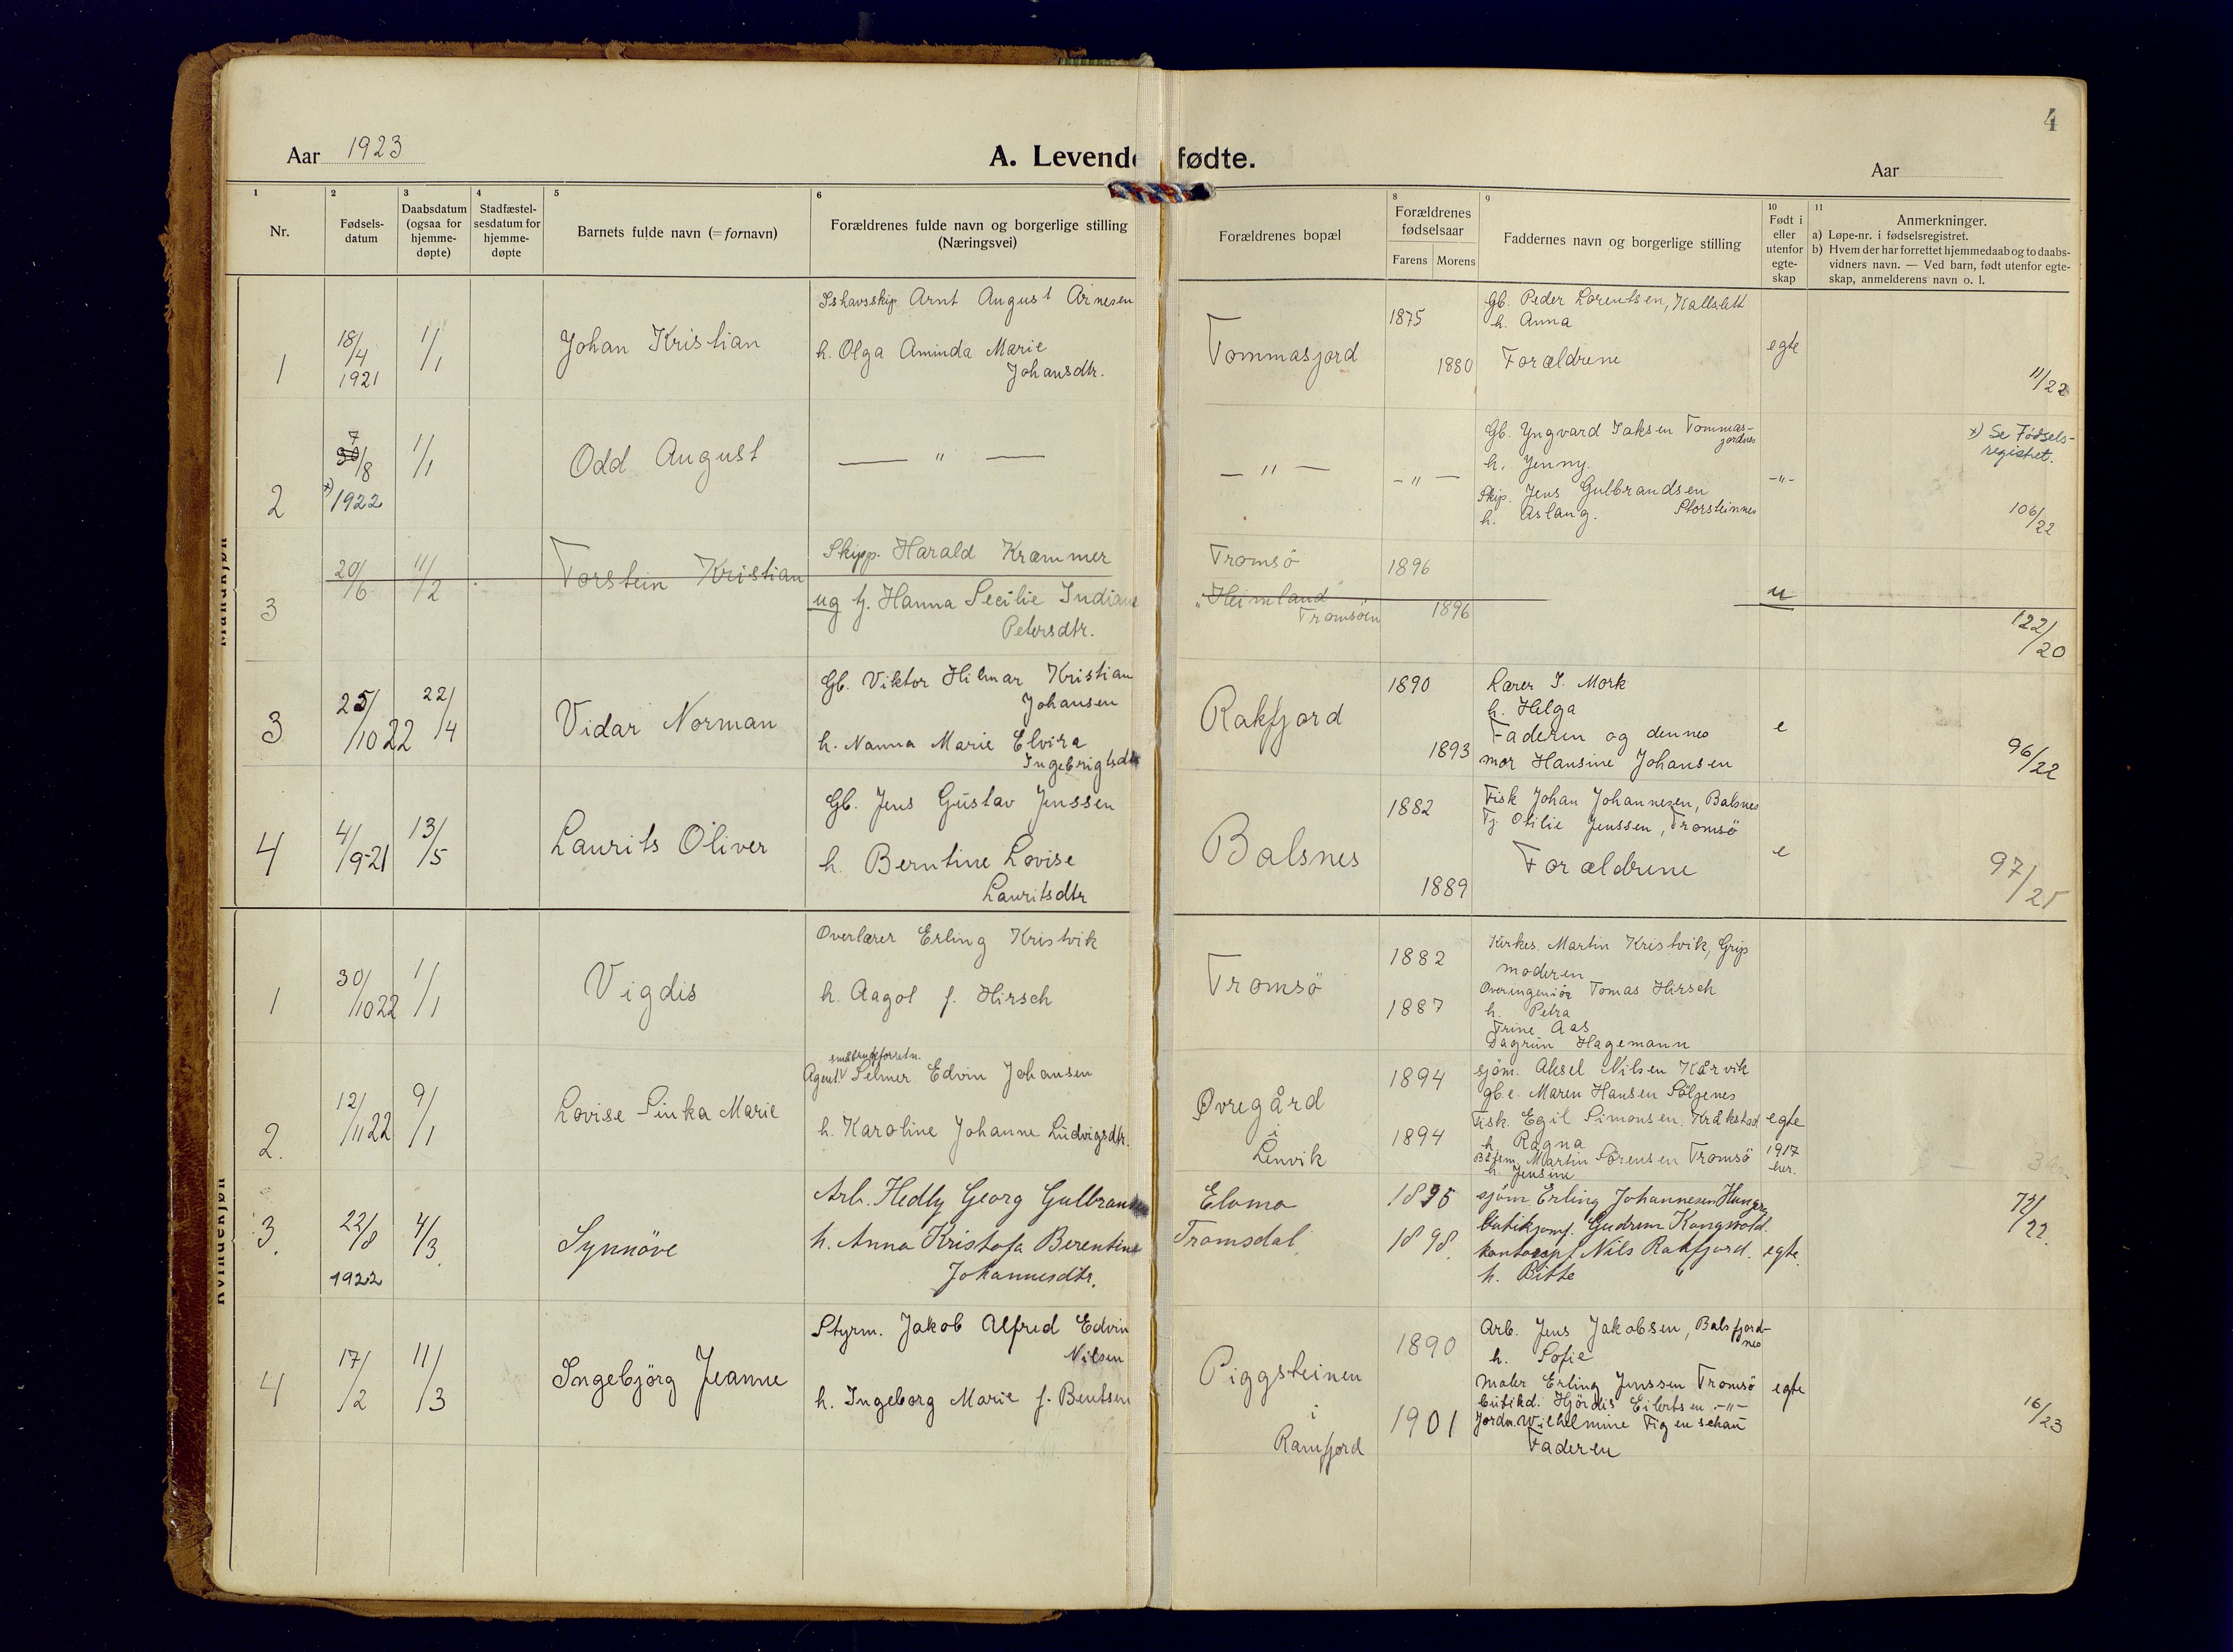 4
Aar 1923
A. Levende fødte.
Aar
1
2
3
4
5
6
8
9
10
11
Nr.
Fødsels-
datum
Daabsdatum
(ogsaa for
hjemme-
døpte)
Stadfæstel-
sesdatum for
hjemme-
døpte
Barnets fulde navn (=fornavn)
Forældrenes fulde navn og borgerlige stilling
(Næringsvei)
Forældrenes bopæl
Forældrenes
fødselsaar
Farens Morens
Faddernes navn og borgerlige stilling
Født i
eller
utenfor
egte-
skap
Anmerkninger.
a) Løpe-nr. i fødselsregistret.
b) Hvem der har forrettet hjemmedaab og to daabs-
vidners navn. — Ved barn, født utenfor egte-
skap, anmelderens navn o. l.
Mandkjøn
1
18/4
1921
1/1
Johan Kristian
Ishavsskip. Arnt August Arnesen
h. Olga Aminda Marie
Johansdtr.
Tommasjord
1875
1880
Gb. Peder Lorentsen, Kallslett
h. Anna
Forældrene
egte
11/22
2
7
30/8
x) 1922
1/1
Odd August
— " —
— " —
— " —
Gb. Yngvard Isaksen Tommas-
jordnes
h. Jenny.
Skip. Jens Gulbrandsen
Storsteinnes
h. Aslaug.
-"-
x) Se Fødsels-
registret.
106/22
3
20/6
11/2
Torstein Kristian
Skipp. Harald Kræmmer
ug tj. Hanna Secilie Indiane
Petersdtr.
Tromsö
"Heimland"
Tromsöen
1896
1896
u
122/20
3
25/10 22
22/4
Vidar Norman
Gb. Viktor Hilmar Kristian
Johansen
h. Nanna Marie Elvira
Ingebrigtsdtr
Rakfjord
1890
1893
Lærer I. Mork
h. Helga
Faderen og dennes
mor Hansine Johansen
e
96/22
4
4/9-21
13/5
Laurits Oliver
Gb. Jens Gustav Jenssen
h. Berntine Lovise
Lauritsdtr
Balsnes
1882
1889
Fisk Johan Johannesen, Balsnes
Tj. Otilie Jenssen, Tromsö
Forældrene
e
97/21
Kvindekjøn
1
30/10 22
1/1
Vigdis
Overlærer Erling Kristvik
h. Aagot f. Hirsch
Tromsö
1882
1887
Kirkes. Martin Kristvik, Grip
moderen
Overingeniör Tomas Hirsch
h. Petra
Trine Aas
Dagrun Hagemann
2.
12/11 22
9/1
Lovise Sinka Marie
småbrukforretn.
Agent. Selmer Edvin Johansen
h. Karoline Johanne Ludvigsdtr.
Øvregård
i
Lenvik
1894
1894
sjöm. Aksel Nilsen Kårvik
gb.e. Maren Hansen Söljenes
Fisk. Egil Simonsen, Kråkstad
h. Ragna
Båtsm. Martin Sörensen Tromsö
h. Jensine
egte
1917
her.
3.
22/8
1922
4/3.
Synnöve
Arb. Hedly Georg Gulbransen
h. Anna Kristofa Berentine
Johannesdtr.
Eloma
Tromsdal
1895
1898.
sjöm. Erling Johannesen Hungeren
butikjomf. Gudrun Kongsvold.
kontorspf. Nils Rakfjord.
h. Bitte "
egte.
72/22.
4
17/2
11/3
Ingebjörg Jeanne
Styrm. Jakob Alfred Edvin
Nilsen
h. Ingeborg Marie f. Bentsen
Piggsteinen
i
Ramfjord
1890
1901
Arb. Jens Jakobsen, Balsfjord-
nes
h. Sofie
Maler Erling Jenssen Tromsö
butikd. Hjördis Eilertsen -"-
Jordm. Wilhelmine Figenschau
Faderen
egte
16/23